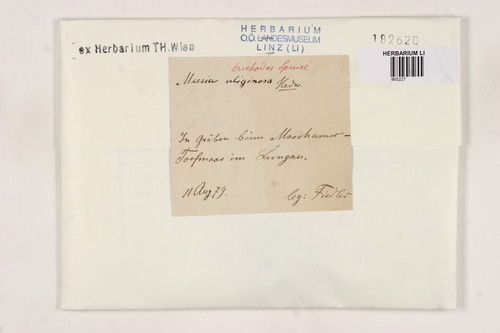 ex Herbarium TH.Wien
HERBARIUM
O.Ö. LANDESMUSEUM
LINZ (LI)
182620
HERBARIUM LI
trichodes Spruce
Meesia uliginosa Hedw.
In Gräben beim Mooshamer-
Torfmoos im Lungau.
11 Aug 79.
leg: Fiedler